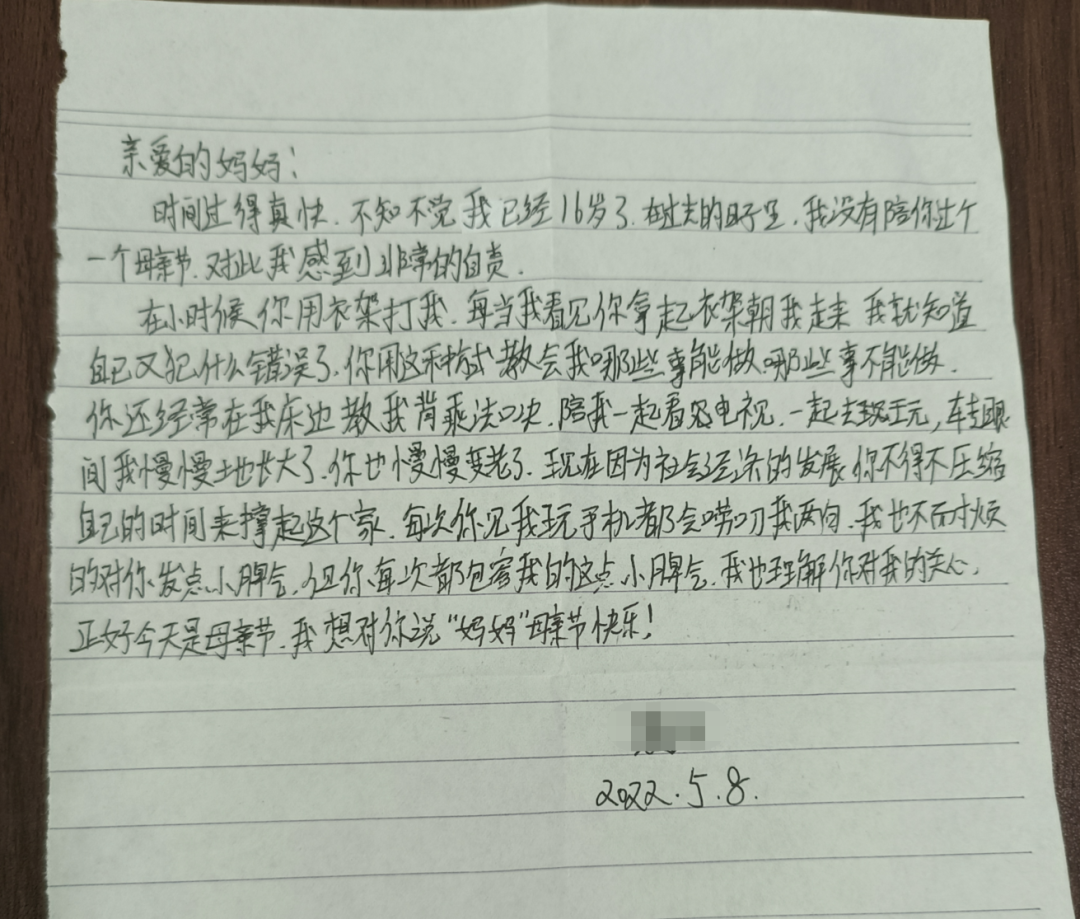 亲爱的妈妈：
时间过得真快.不知不觉我已经16岁了.在过去的日子里.我没有陪你过个
一个母亲节.对此我感到非常的自责.
在小时候你用衣架打我.每当我看见你拿起衣架朝我走来 我就知道
自己又犯什么错误了.你用这种方式教会我哪些事能做.哪些事不能做.
你还经常在我床边教我背乘法口决.陪我一起看电视.一起去玩,转眼
间我慢慢地长大了.你也慢慢变老了.现在因为社会经济的发展.你不得不压缩
自己的时间来撑起这个家.每次你见我玩手机都会唠叨我两句.我也不耐烦
的对你发点小脾气.但你每次都包容我的这点小脾气.我也理解你对我的关心.
正好今天是母亲节.我想对你说“妈妈”母亲节快乐！
2022.5.8.